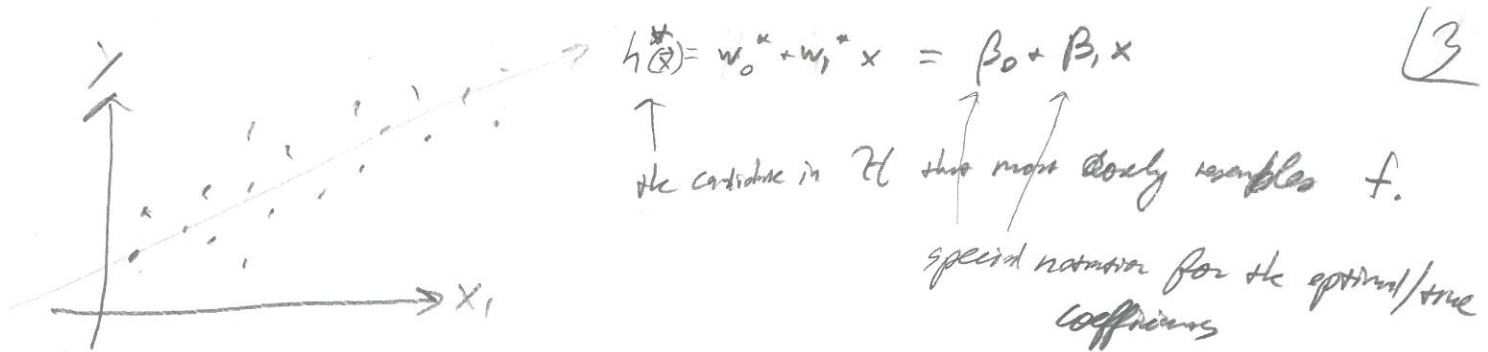 y
h*(x) = w₀* + w₁* x = β₀ + β₁ x
3
the candidate in H that most closely resembles f.
special notation for the optimal/true
coefficients
x₁